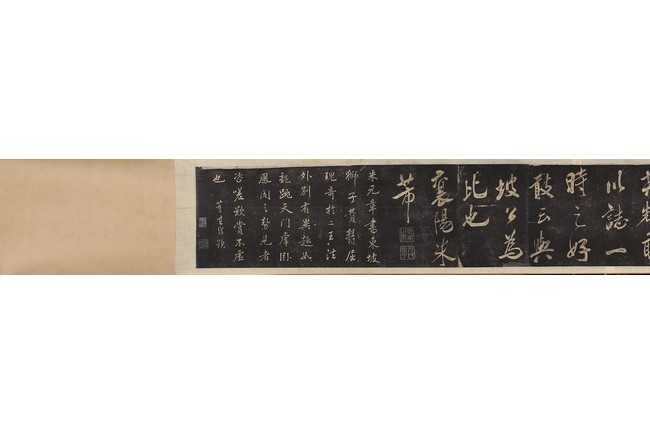 以誌一
時之好
敢云與
坡公為
比也
襄陽米
芾
朱元章書東坡
獅子贊瑰
瑰奇於二王法
外別有異趣如
龍跳天門虎卧
鳳閣之勢見者
咨嗟歎賞不虛
也